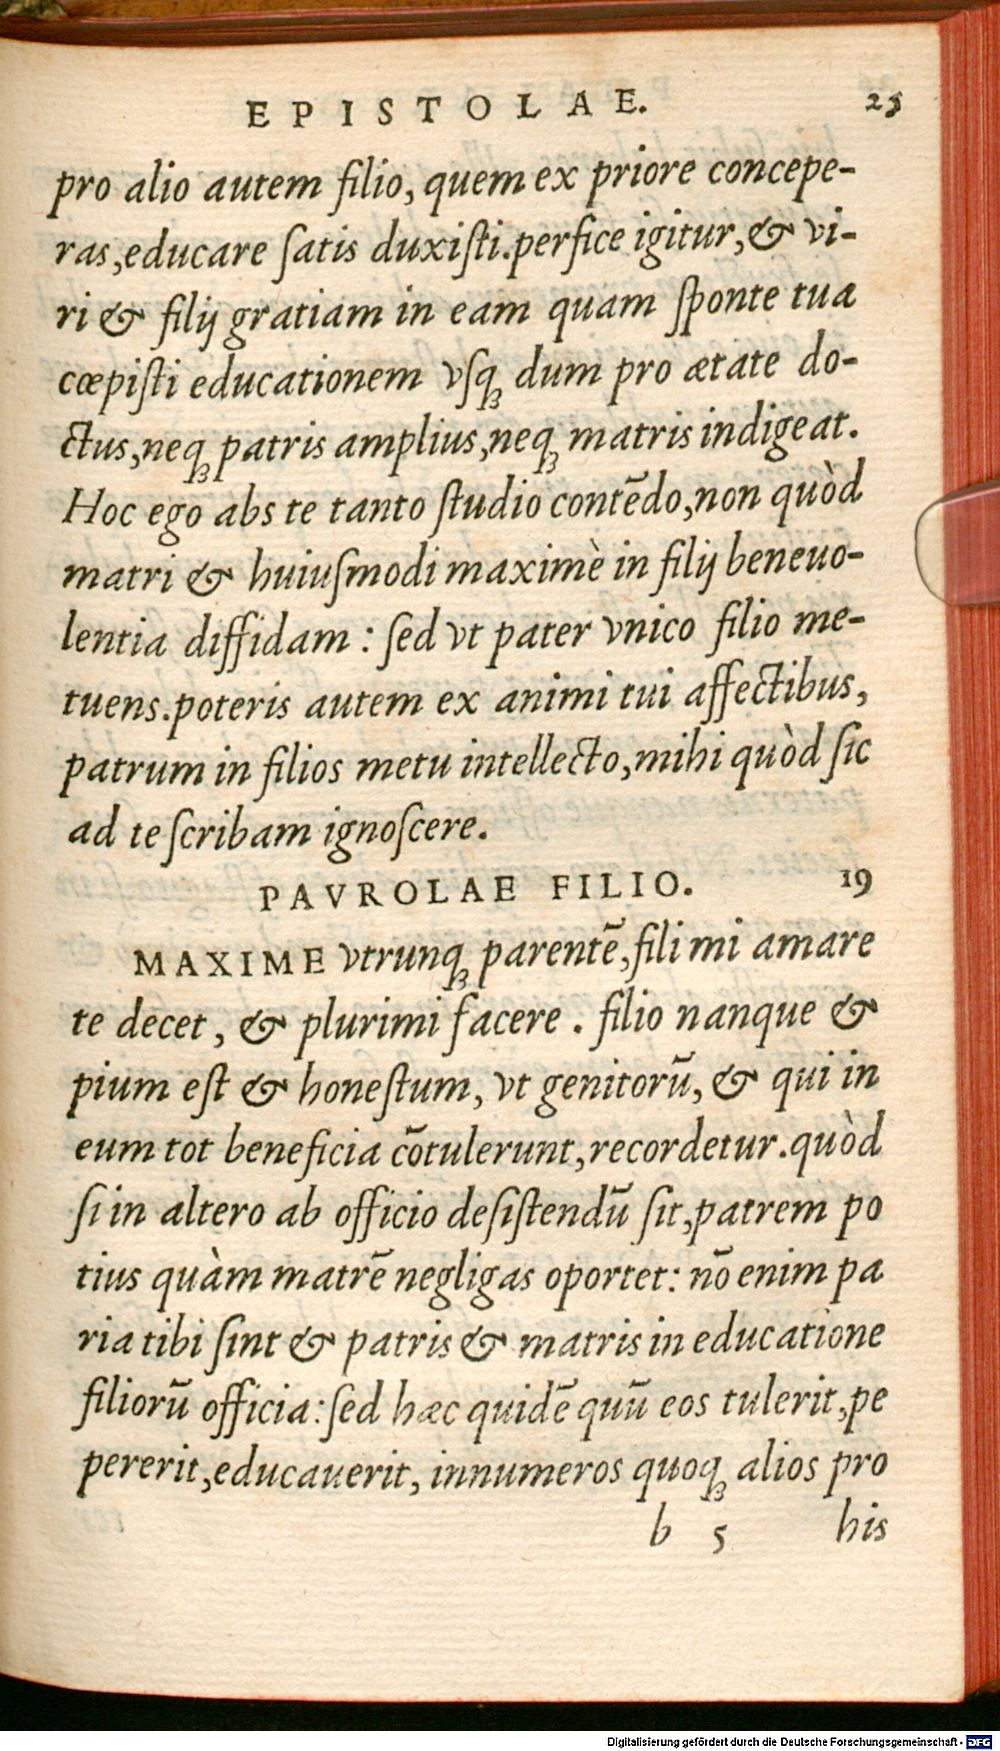 EPISTOLAE. 25
pro alio autem filio, quem ex priore concepe-
ras, educare ſatis duxiſti. perfice igitur, & vi-
ri & filij gratiam in eam quam ſponte tua
cœpiſti educationem vſqꝫ dum pro ætate do-
ctus, neqꝫ patris amplius, neqꝫ matris indigeat.
Hoc ego abs te tanto ſtudio contēdo, non quòd
matri & huiuſmodi maximè in filij beneuo-
lentia diffidam : ſed vt pater vnico filio me-
tuens. poteris autem ex animi tui affectibus,
patrum in filios metu intellecto, mihi quòd ſic
ad te ſcribam ignoſcere.
PAVROLAE FILIO. 19
MAXIME vtrunqꝫ parentē, fili mi amare
te decet, & plurimi facere. filio nanque &
pium eſt & honeſtum, vt genitorū, & qui in
eum tot beneficia cōtulerunt, recordetur. quòd
ſi in altero ab officio deſiſtendū ſit, patrem po
tius quàm matrē negligas oportet: nō enim pa
ria tibi ſint & patris & matris in educatione
filiorū officia: ſed hæc quidē quū eos tulerit, pe
pererit, educauerit, innumeros quoqꝫ alios pro
b 5 his
Digitalisierung gefördert durch die Deutsche Forschungsgemeinschaft - DFG